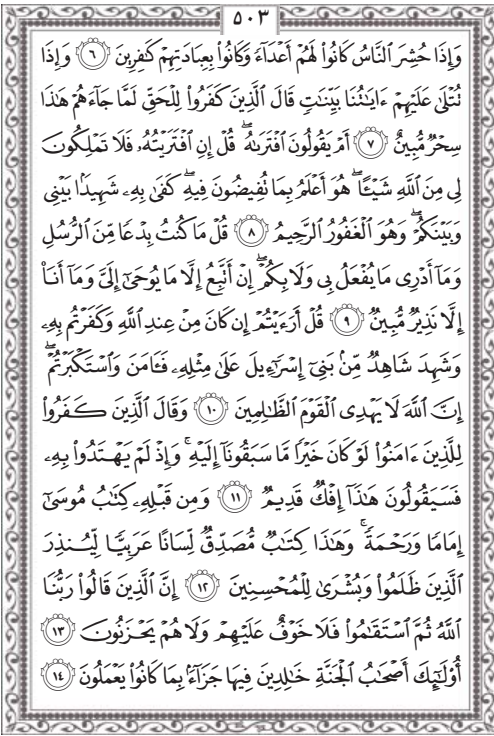 ٥٠٣
وَإِذَا حُشِرَ ٱلنَّاسُ كَانُوا۟ لَهُمْ أَعْدَآءً وَكَانُوا۟ بِعِبَادَتِهِمْ كَٰفِرِينَ ٦ وَإِذَا
تُتْلَىٰ عَلَيْهِمْ ءَايَٰتُنَا بَيِّنَٰتٍ قَالَ ٱلَّذِينَ كَفَرُوا۟ لِلْحَقِّ لَمَّا جَآءَهُمْ هَٰذَا
سِحْرٌ مُّبِينٌ ٧ أَمْ يَقُولُونَ ٱفْتَرَىٰهُ ۖ قُلْ إِنِ ٱفْتَرَيْتُهُۥ فَلَا تَمْلِكُونَ
لِى مِنَ ٱللَّهِ شَيْـًٔا ۖ هُوَ أَعْلَمُ بِمَا تُفِيضُونَ فِيهِ ۖ كَفَىٰ بِهِۦ شَهِيدًۢا بَيْنِى
وَبَيْنَكُمْ ۖ وَهُوَ ٱلْغَفُورُ ٱلرَّحِيمُ ٨ قُلْ مَا كُنتُ بِدْعًا مِّنَ ٱلرُّسُلِ
وَمَآ أَدْرِى مَا يُفْعَلُ بِى وَلَا بِكُمْ ۖ إِنْ أَتَّبِعُ إِلَّا مَا يُوحَىٰٓ إِلَىَّ وَمَآ أَنَا۠
إِلَّا نَذِيرٌ مُّبِينٌ ٩ قُلْ أَرَءَيْتُمْ إِن كَانَ مِنْ عِندِ ٱللَّهِ وَكَفَرْتُم بِهِۦ
وَشَهِدَ شَاهِدٌ مِّنۢ بَنِىٓ إِسْرَٰٓءِيلَ عَلَىٰ مِثْلِهِۦ فَـَٔامَنَ وَٱسْتَكْبَرْتُمْ ۖ
إِنَّ ٱللَّهَ لَا يَهْدِى ٱلْقَوْمَ ٱلظَّٰلِمِينَ ١٠ وَقَالَ ٱلَّذِينَ كَفَرُوا۟
لِلَّذِينَ ءَامَنُوا۟ لَوْ كَانَ خَيْرًا مَّا سَبَقُونَآ إِلَيْهِ ۚ وَإِذْ لَمْ يَهْتَدُوا۟ بِهِۦ
فَسَيَقُولُونَ هَٰذَآ إِفْكٌ قَدِيمٌ ١١ وَمِن قَبْلِهِۦ كِتَٰبُ مُوسَىٰٓ
إِمَامًا وَرَحْمَةً ۚ وَهَٰذَا كِتَٰبٌ مُّصَدِّقٌ لِّسَانًا عَرَبِيًّا لِّيُنذِرَ
ٱلَّذِينَ ظَلَمُوا۟ وَبُشْرَىٰ لِلْمُحْسِنِينَ ١٢ إِنَّ ٱلَّذِينَ قَالُوا۟ رَبُّنَا
ٱللَّهُ ثُمَّ ٱسْتَقَٰمُوا۟ فَلَا خَوْفٌ عَلَيْهِمْ وَلَا هُمْ يَحْزَنُونَ ١٣
أُو۟لَٰٓئِكَ أَصْحَٰبُ ٱلْجَنَّةِ خَٰلِدِينَ فِيهَا جَزَآءًۢ بِمَا كَانُوا۟ يَعْمَلُونَ ١٤